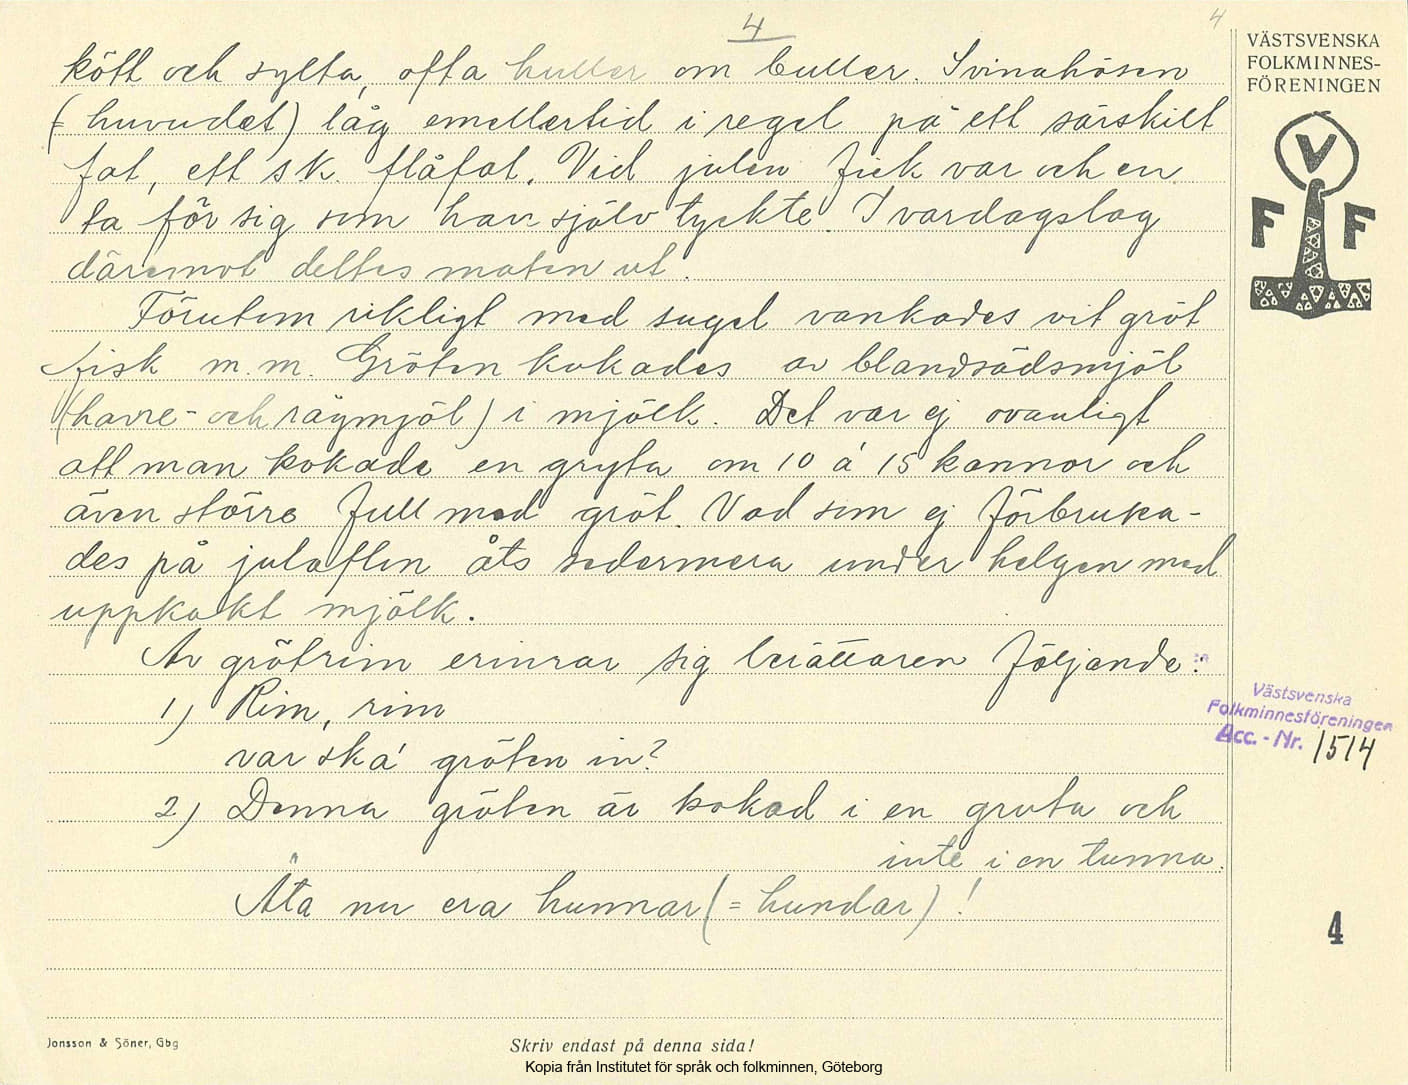 4
4
kött och sylta, ofta huller om buller. Svinahösen
(= huvudet) låg emellertid i regel på ett särskilt
fat, ett s.k. flåfat. Vid julen fick var och en
ta för sig som han själv tyckte. I vardagslag
däremot deltes maten ut.
Förutom rikligt med sugel vankades vit gröt
fisk m.m. Gröten kokades av blandsädsmjöl
(havre- och rågmjöl) i mjölk. Det var ej ovanligt
att man kokade en gryta om 10 á 15 kannor och
även större full med gröt. Vad som ej förbruka-
des på julaften åts sedermera under helgen med
uppkokt mjölk.
Av grötrim erinrar sig berättaren följande:
1) Rim, rim
var ska' gröten in?
2) Denna gröten är kokad i en gruta och
inte i en tunna.
Äta nu era hunnar (= hundar)!
VÄSTSVENSKA
FOLKMINNES-
FÖRENINGEN
V
F F
Västsvenska
Folkminnesföreningen
Acc. - Nr. 1514
4
Jonsson & Söner, Gbg
Skriv endast på denna sida!
Kopia från Institutet för språk och folkminnen, Göteborg